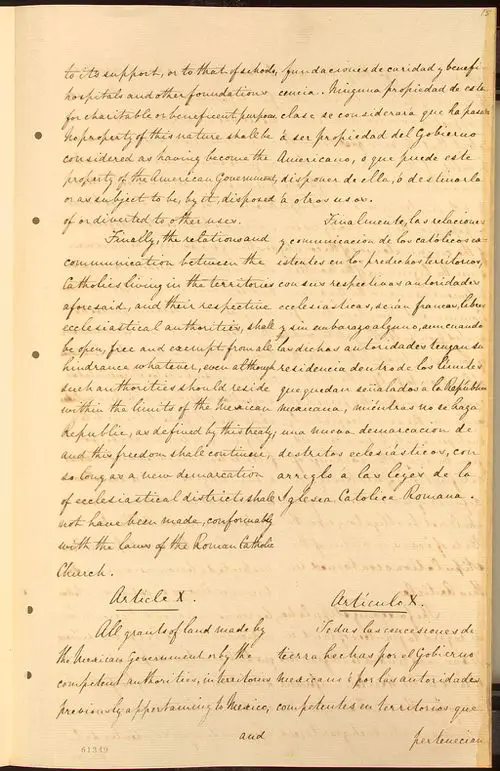 15
to its support, or to that of schools,
hospitals and other foundations
for charitable or beneficent purposes.
No property of this nature shall be
considered as having become the
property of the American Government,
or as subject to be, by it, disposed
of or diverted to other uses.
Finally, the relations and
communication between the
Catholics living in the territories
aforesaid, and their respective
ecclesiastical authorities, shall
be open, free and exempt from all
hindrance whatever, even although
such authorities should reside
within the limits of the Mexican
Republic, as defined by this treaty;
and this freedom shall continue,
so long as a new demarcation
of ecclesiastical districts shall
not have been made, conformably
with the laws of the Roman Catholic
Church.
Article X.
All grants of land made by
the Mexican Government or by the
competent authorities, in territories
previously appertaining to Mexico,
and
fundaciones de caridad y benefi-
cencia. Ninguna propiedad de esta
clase se considerará que ha pasado
á ser propiedad del Gobierno
Americano, o que puede este
disponer de ella, ó destinarla
á otros usos.
Finalmente, las relaciones
y comunicacion de los católicos ec-
sistentes en los predichos territorios,
con sus respectivas autoridades
eclesiasticas, serán francas, libres
y sin embarazo alguno, aun cuando
las dichas autoridades tengan su
residencia dentro de los limites
que quedan señalados a la República
mexicana, miéntras no se haga
una nueva demarcacion de
distritos eclesiásticos, con
arreglo á las leyes de la
Iglesia Catolica Romana.
Artículo X.
Todas las concesiones de
tierra hechas por el Gobierno
mexicano ó por las autoridades
competentes en territorios que
pertenecian
61349